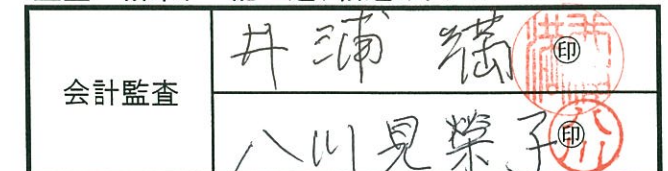 会計監査
井浦 満 ㊞
八川見榮子 ㊞